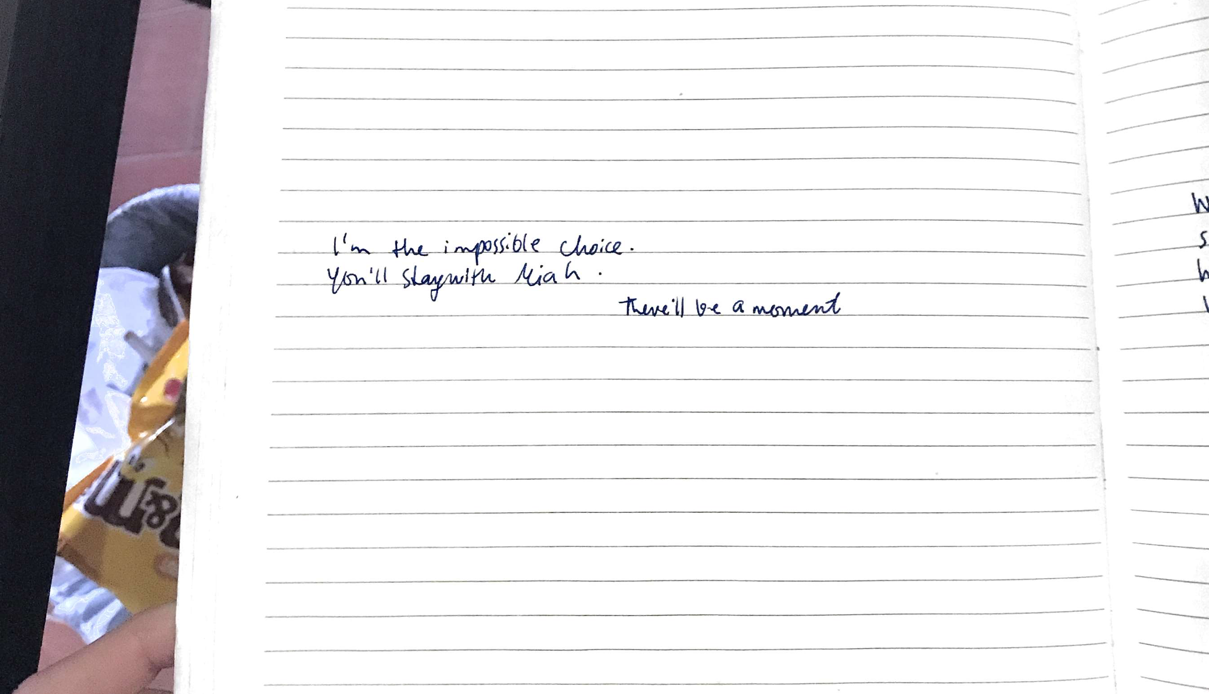 I'm the impossible choice.
You'll stay with Miah.
there'll be a moment
m&m